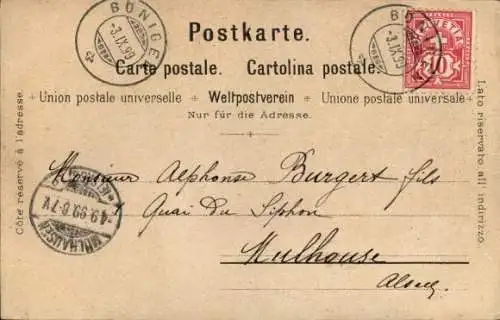 BÖNIGEN
-3.IX.99
BÖNIGEN
-3.IX.99
HELVETIA
10
Postkarte.
Carte postale. Cartolina postale.
Union postale universelle + Weltpostverein + Unione postale universale
Nur für die Adresse.
Côté réservé à l'adresse.
Lato riservato all' indirizzo.
Monsieur Alphonse Burgert fils
Quai du Siphon
Mulhouse
Alsace
MÜLHAUSEN
4.9.99.6-7V.